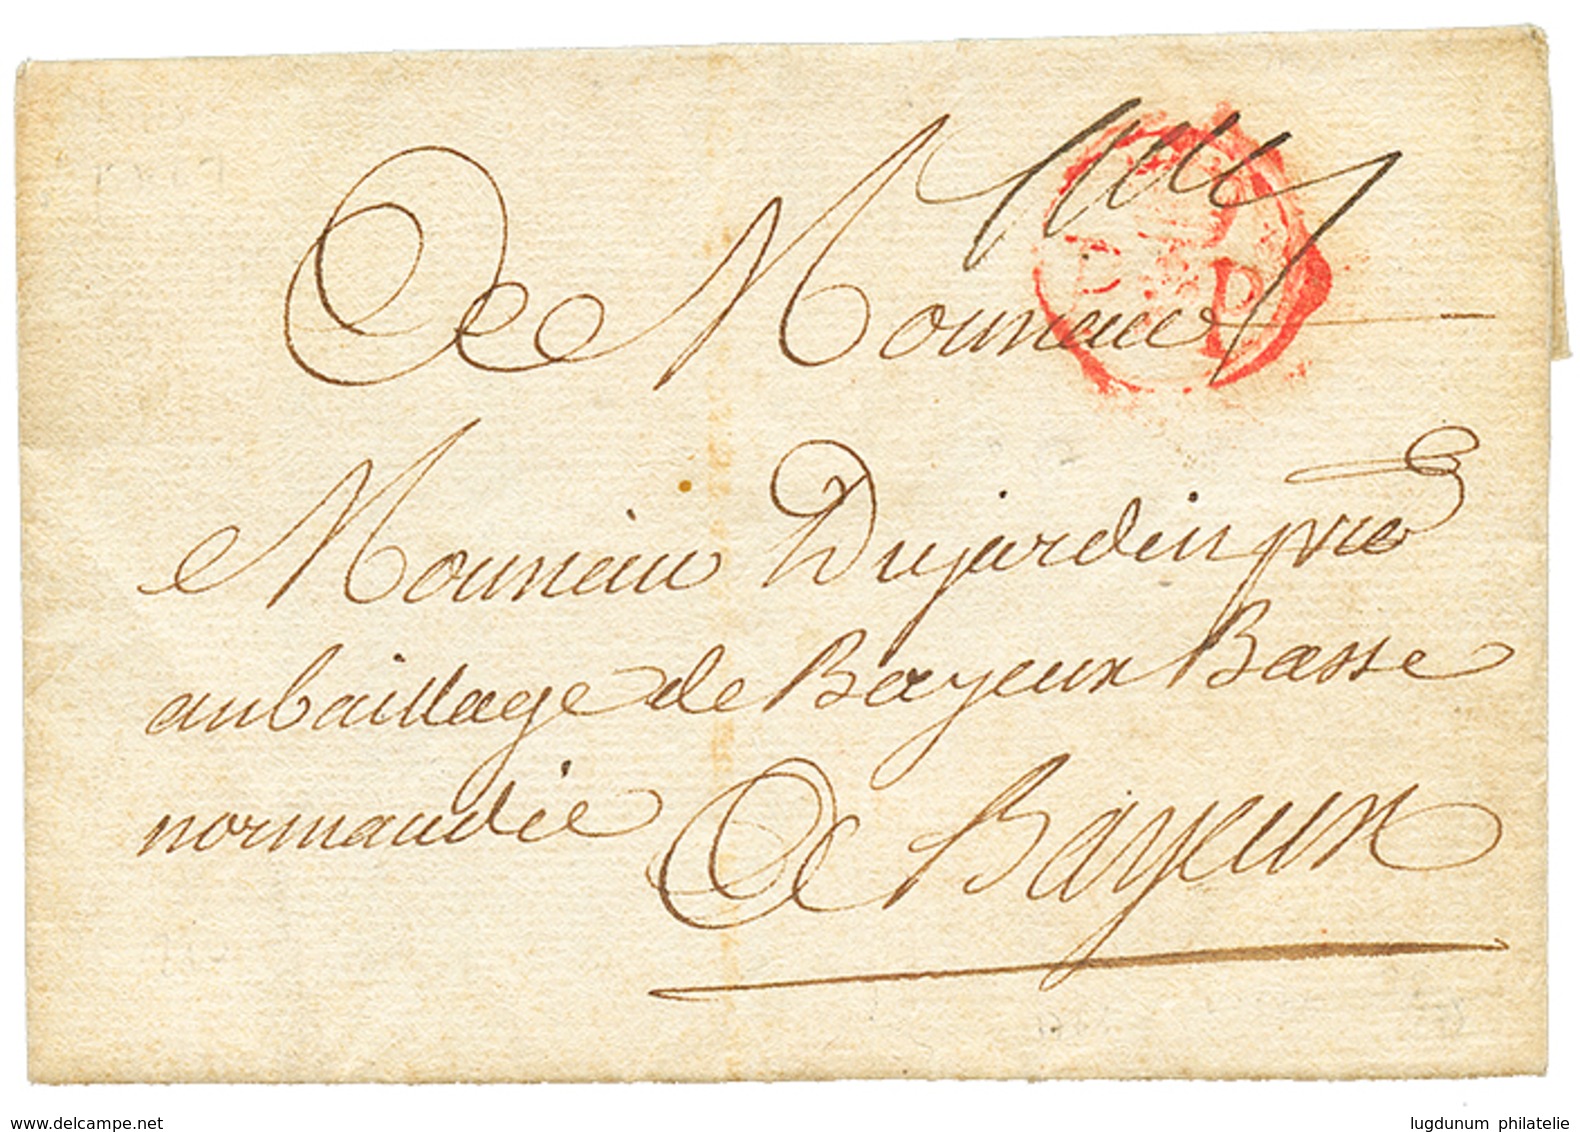 A Monsieur
D P
Monsieur Dujardin
au bailliage de Bayeux Basse
normandie A Bayeux
www.delcampe.net
lugdunum philatelie